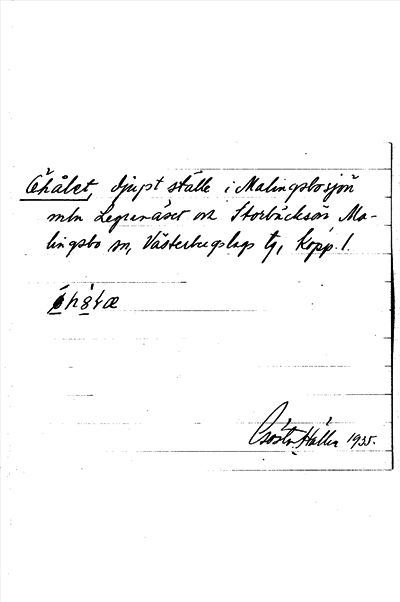 Öhålet, djupt ställe i Malingsbosjön
mln Legrenäset och Storbäcksön, Ma-
lingsbo sn, Västerbergslags tg, Kopp. l.
Gösta Hallin 1935.